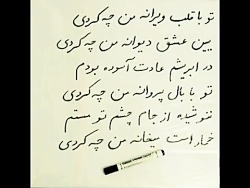 تو با قلب ویرانه من چه کردی
ببین عشق دیوانه من چه کردی
در ابریشم عادت آسوده بودم
تو با بال پروانه من چه کردی
ننوشیده از جام چشم تو مستم
خمار است میخانه من چه کردی